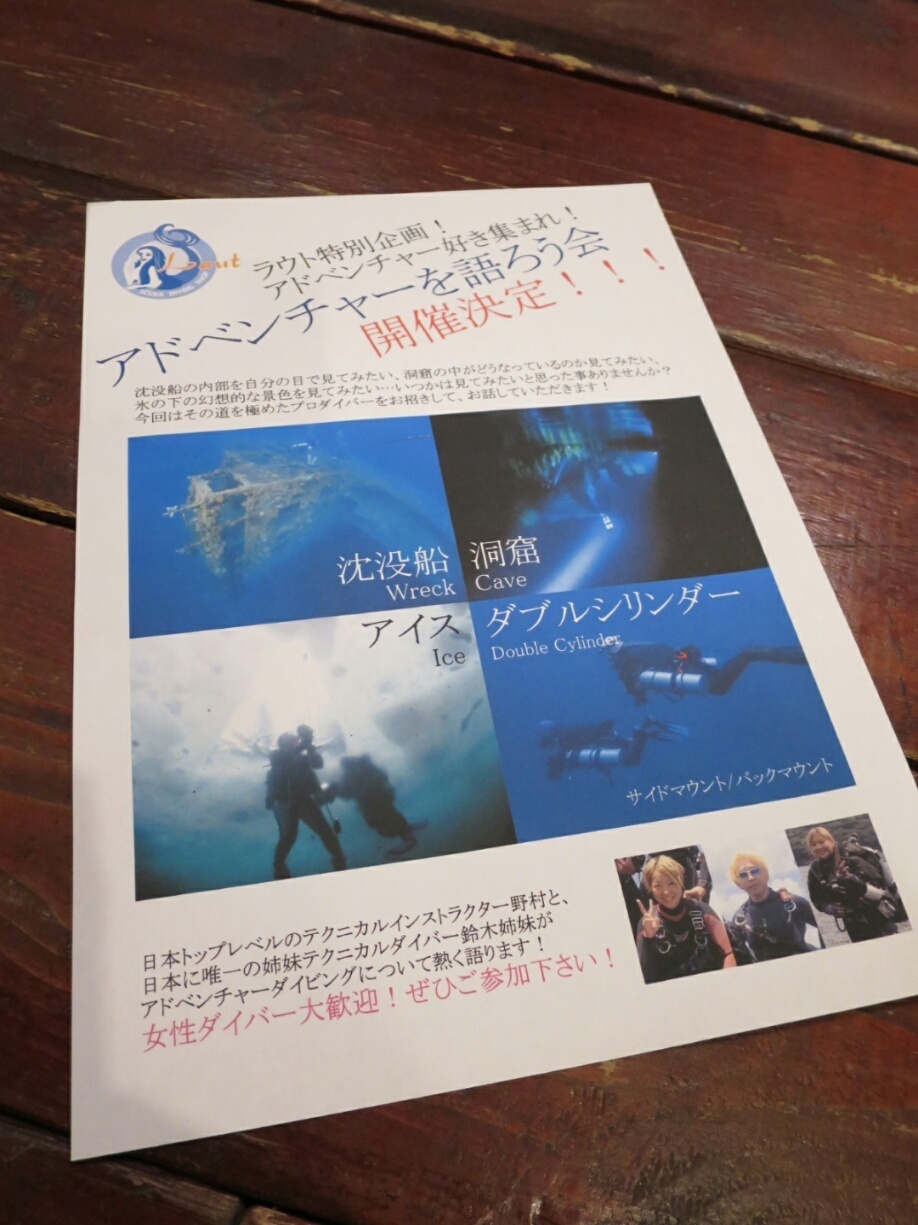 Laut
SCUBA DIVING
ラウト特別企画！
アドベンチャー好き集まれ！
アドベンチャーを語ろう会
開催決定！！！
沈没船の内部を自分の目で見てみたい、洞窟の中がどうなっているのか見てみたい、
氷の下の幻想的な景色を見てみたい…いつかは見てみたいと思った事ありませんか？
今回はその道を極めたプロダイバーをお招きして、お話していただきます！
沈没船
Wreck
洞窟
Cave
アイス
Ice
ダブルシリンダー
Double Cylinder
サイドマウント/バックマウント
日本トップレベルのテクニカルインストラクター野村と、
日本に唯一の姉妹テクニカルダイバー鈴木姉妹が
アドベンチャーダイビングについて熱く語ります！
女性ダイバー大歓迎！ぜひご参加下さい！